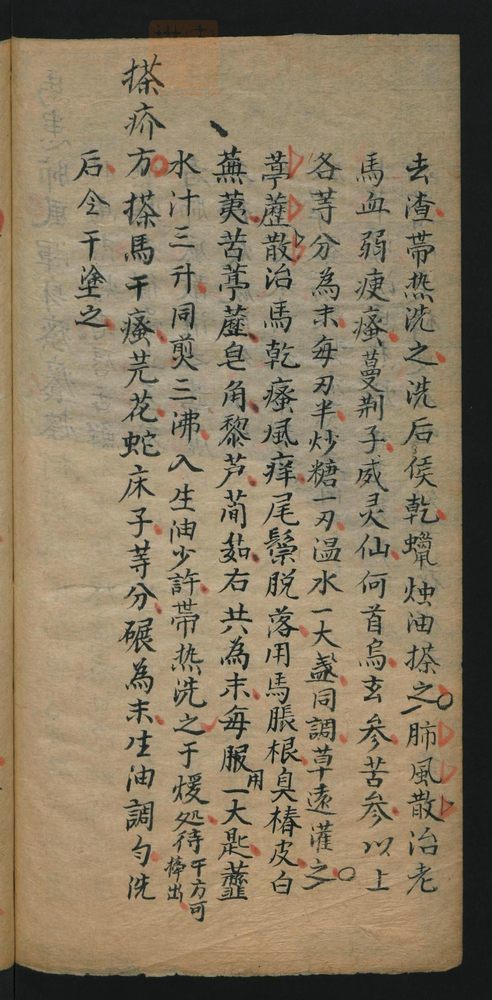 去渣帶热洗之洗后侯乾蠟烛油搽之肺風散治老
馬血弱瘦瘙蔓荆子威灵仙何首烏玄参苦参以上
各等分為末每刄半炒糖一刄温水一大盞同調草远灌之
葶蘼散治馬乾瘙風痒尾鬃脱落用馬脹根臭椿皮白
蕪荑苦葶蘼皂角黎芦蕳茹右共為末每服用一大匙虀
水汁三升同煎三沸入生油少許帶热洗之于煖処待干方可掃出
搽疥方搽馬干瘙芫花蛇床子等分碾為末生油調勻洗
后令干塗之